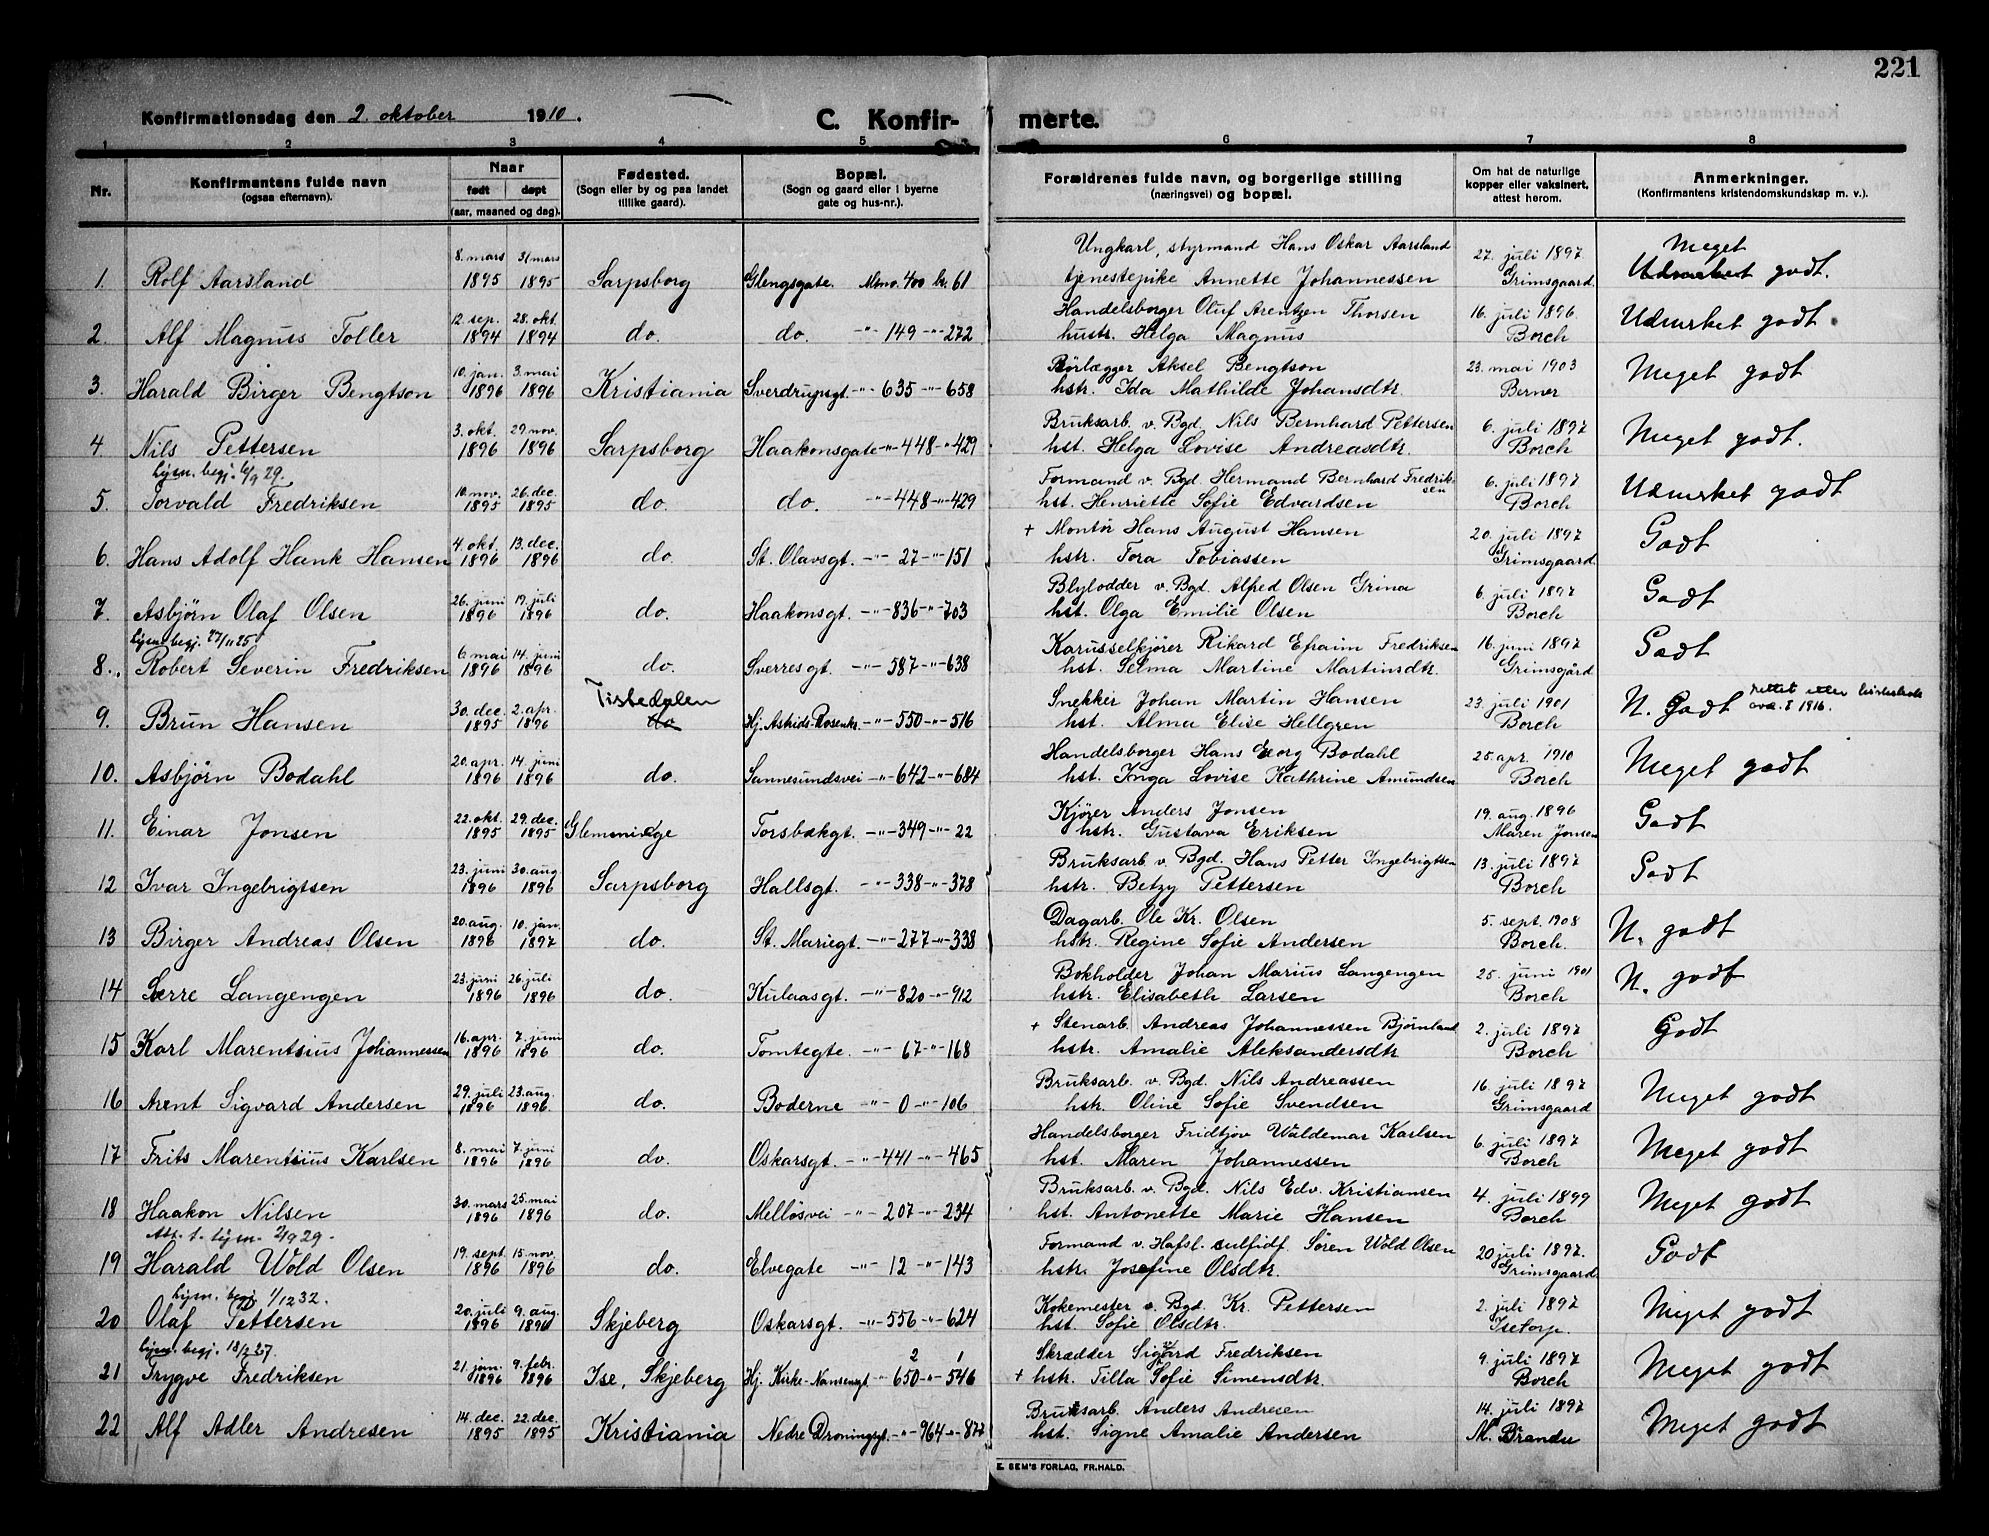 221
Konfirmationsdag den 2. oktober 1910.
C. Konfir-
merte.
1 2 3 4 5 6 7 8
Nr.
Konfirmantens fulde navn
(ogsaa efternavn).
Naar
født døpt
(aar, maaned og dag).
Fødested.
(Sogn eller by og paa landet
tillike gaard).
Bopæl.
(Sogn og gaard eller i byerne
gate og hus-nr.).
Forældrenes fulde navn, og borgerlige stilling
(næringsvei) og bopæl.
Om hat de naturlige
kopper eller vaksinert,
attest herom.
Anmerkninger.
(Konfirmantens kristendomskundskap m. v.).
8. mars 31 mars Ungkarl, styrmand Hans Oskar Aarsland 27. juli 1897 Meget
1. Rolf Aarsland 1895 1895 Sarpsborg Glengsgate. Mtno. 400 br. 61 tjenestepike Annette Johannessen Grimsgaard Udmerket godt.
12. sep. 28. okt. Handelsborger Oluf Arentzen Thorsen 16. juli 1896
2. Alf Magnus Toller 1894 1894 do. do. -"- 149 -"- 272 hustr. Helga Magnus Borch Udmerket godt.
10. jan. 3. mai Rørlægger Aksel Bengtson 23. mai 1903
3. Harald Birger Bengtson 1896 1896 Kristiania Sverdrupsgt. -"- 635 -"- 658 hstr. Ida Mathilde Johansdtr. Berner Meget godt
3. okt. 29. nov. Bruksarb. v. Bgd. Nils Bernhard Pettersen 6. juli 1897
4 Nils Pettersen 1896 1896 Sarpsborg Haakonsgate -"- 448 -"- 429 hst. Helga Lovise Andreasdtr. Borch Meget godt.
Lysn. begj. 6/9 29.
10. nov. 26. dec. Formand v. Bgd. Hermand Bernhard Fredriksen 6. juli 1897
5. Torvald Fredriksen 1895 1895 do. do. -"- 448 -"- 429 hst. Henriette Sofie Edvardsen Borch Udmerket godt
4. okt. 13. dec. + Montør Hans August Hansen 20. juli 1897
6. Hans Adolf Hank Hansen 1896 1896 do St. Olavsgt. -"- 27 -"- 151 hstr. Tora Tobiassen Grimsgaard Godt
26. juni 19. juli Blylodder v. Bgd. Alfred Olsen Grina 6. juli 1897
7. Asbjørn Olaf Olsen 1896 1896 do. Haakonsgt. -"- 836 -"- 703 hst. Olga Emilie Olsen Borch Godt
Lysn. begj. 27/11 25
6 mai 14. juni Karusselkjører Rikard Efraim Fredriksen 16. juni 1897
8. Robert Severin Fredriksen 1896 1896 do. Sverres gt. -"- 587 -"- 638 hst. Selma Martine Martinsdtr. Grimsgård Godt
30. dec. 2. apr. Tistedalen Snekker Johan Martin Hansen 23. juli 1901 rettet etter
9. Brun Hansen 1895 1896 do Hj. Astrids-Rosenkr. -"- 550 -"- 516 hst. Alma Elise Hellgren Borch N. Godt 1916.
20. apr. 14 juni Handelsborger Hans Georg Bodahl 25. apr. 1910
10. Asbjørn Bodahl 1896 1896 do. Sannesundsvei -"- 642 -"- 684 hst. Inga Lovise Kathrine Amundsen Borch Meget godt
22. okt. 29. dec. Kjører Anders Jonsen 19. aug. 1896
11. Einar Jonsen 1895 1895 Glemminge Torsbækgt. -"- 349 -"- 22 hstr. Gustava Eriksen Maren Jonsen Godt
23. juni 30. aug. Bruksarb. v. Bgd. Hans Petter Ingebrigtsen 13. juli 1897
12 Ivar Ingebrigtsen 1896 1896 Sarpsborg Hallsgt. -"- 338 -"- 378 hstr. Betzy Pettersen Borch Godt
20. aug. 10. jan. Dagarb. Ole Kr. Olsen 5. sept. 1908
13 Birger Andreas Olsen 1896 1897 do. St. Mariegt. -"- 277 -"- 338 hstr. Regine Sofie Andersen Borch. N. godt
23. juni 26. juli Bokholder Johan Marius Langengen 25. juni 1901
14 Sverre Langengen 1896 1896 do. Kulaasgt. -"- 820 -"- 912 hstr. Elisabeth Larsen Borch N. godt
16. apr. 7. juni + Stenarb. Andreas Johannessen Bjørnland 2. juli 1897
15 Karl Marentsius Johannessen 1896 1896 do. Tomtegte. -"- 67 -"- 168 hstr. Amalie Aleksandersdtr. Borch Godt
29. juli 23. aug. Bruksarb. v. Bgd. Nils Andreassen 16. juli 1897
16 Arent Sigvard Andersen 1896 1896. do. Boderne -"- 0 -"- 106 hstr. Oline Sofie Svendsen Grimsgaard Meget godt
8. mai 7. juni Handelsborger Fridtjov Waldemar Karlsen 6. juli 1897
17 Frits Marentsius Karlsen 1896 1896 do. Oskarsgt. -"- 441 -"- 465 hst. Maren Johannessen Borch Meget godt
30. mars 25. mai Bruksarb. v. Bgd. Nils Edv. Kristiansen 4. juli 1899
18 Haakon Nilsen 1896 1896 do. Melløsvei -"- 207 -"- 234 hst. Antonette Marie Hansen Borch Meget godt
Att. t. lysn. 2/9 29.
19. sept. 15. nov. Formand v. Hafsl. sulfidf. Søren Wold Olsen 20 juli 1897.
19 Harald Wold Olsen 1896 1896 do. Elvegate -"- 12 -"- 143 hstr. Josefine Olsdtr. Grimsgaard Godt
Lysn. begj. 1/12 32.
20. juli 9. aug. Kokemester v. Bgd. Kr. Pettersen 2. juli 1897
20 Olaf Pettersen 1896 1896 Skjeberg Oskarsgt. -"- 556 -"- 624 hst. Sofie Olsdtr. Isetorp. Meget godt
Lysn. begj. 18/2 27.
21. jan. 9. febr. 2 1 Skrædder Sigvard Fredriksen 9. juli 1897
21 Trygve Fredriksen 1896 1896 Ise, Skjeberg Hj. Kirke-Nansensgt. -"- 650 -"- 546 + hstr. Tilla Sofie Simensdtr. Borch Meget godt
14. dec. 22. dec. Bruksarb. Anders Andresen 14. juli 1897
22 Alf Adler Andresen 1895 1895 Kristiania Nedre Droningsgt. -"- 964 -"- 877 hst. Signe Amalie Andersen M. Brandu Meget godt
E. SEM'S FORLAG, FR.HALD.